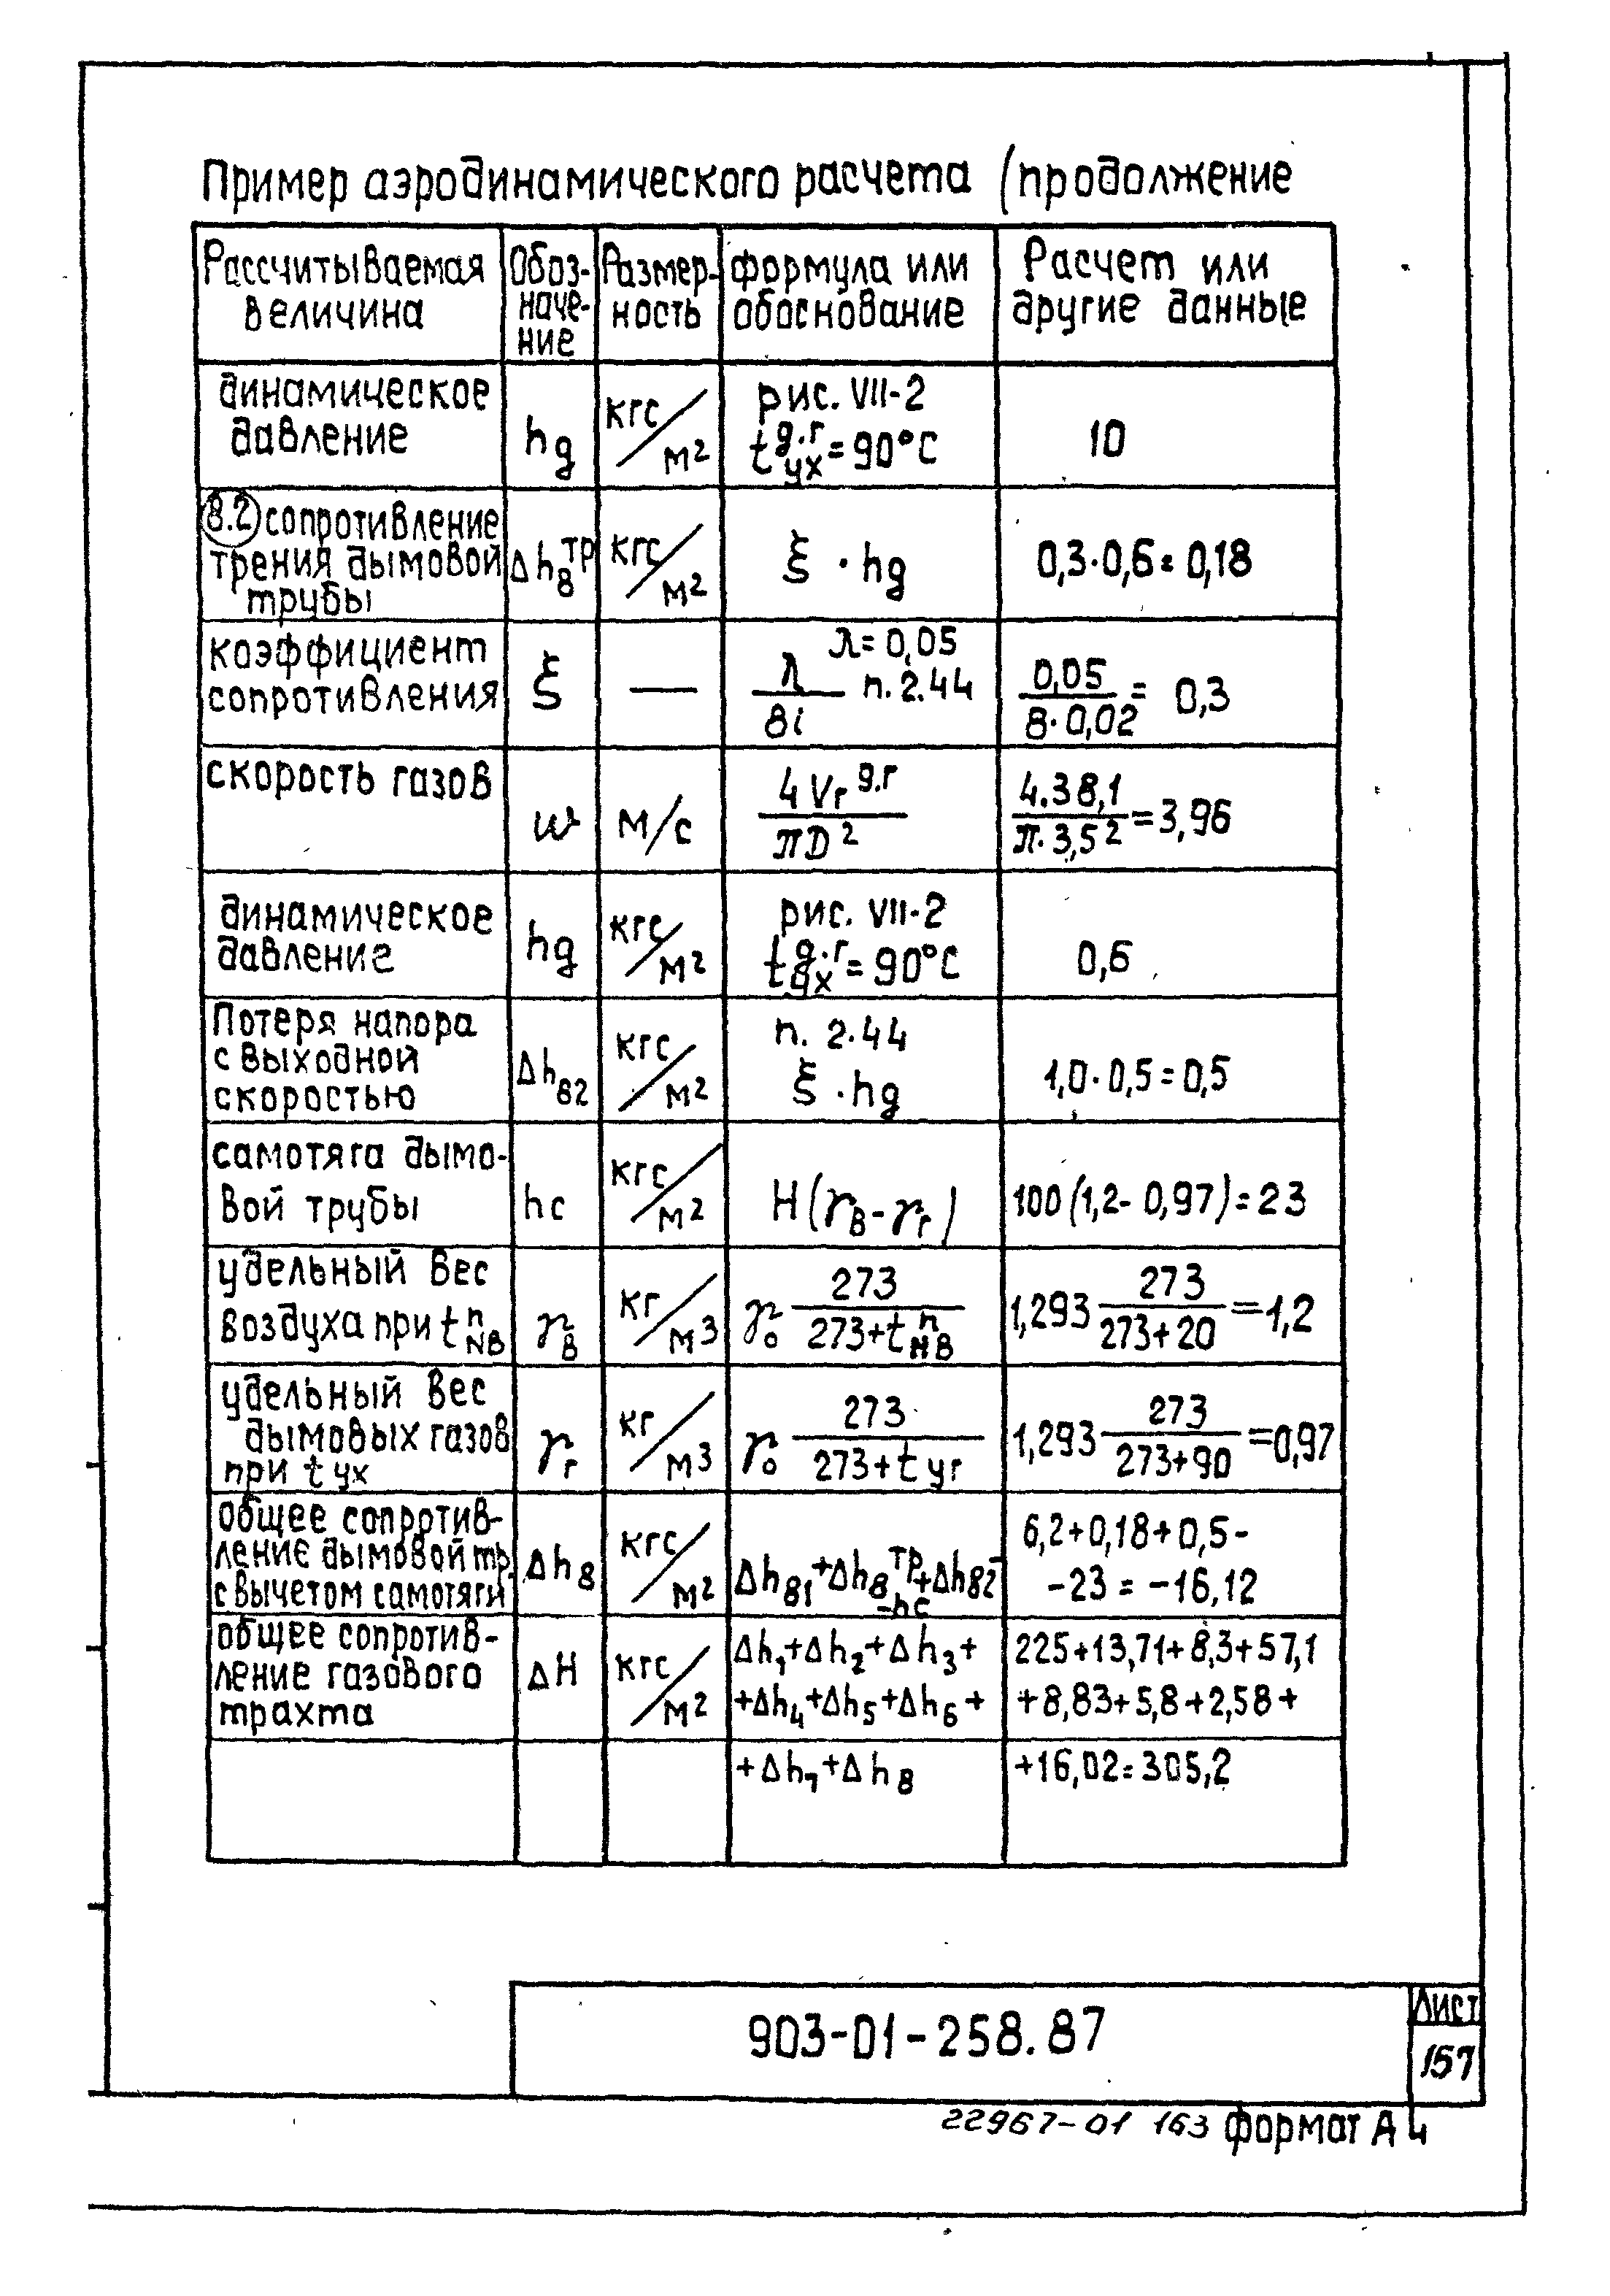 Пример аэродинамического расчета (продолжение
Рассчитываемая величина | Обоз-наче-ние | Размер-ность | формула или обоснование | Расчет или другие данные
динамическое давление | hg | кгс/м² | рис. VII-2 t_ух^g.г = 90°С | 10
(8.2) сопротивление трения дымовой трубы | Δh_8^тр | кгс/м² | ξ · hg | 0,3·0,6 = 0,18
коэффициент сопротивления | ξ | — | λ/8i λ = 0,05 п. 2.44 | 0,05/8·0,02 = 0,3
скорость газов | w | м/с | 4Vг^g.г/πD² | 4.38,1/π·3,5² = 3,96
динамическое давление | hg | кгс/м² | рис. VII-2 t_ух^g.г = 90°С | 0,6
Потеря напора с выходной скоростью | Δh_82 | кгс/м² | п. 2.44 ξ · hg | 1,0·0,5 = 0,5
самотяга дымо-вой трубы | hc | кгс/м² | H(γ_в - γ_г) | 100(1,2- 0,97) = 23
удельный вес воздуха при t_NB^п | γ_в | кг/м³ | γ_0 273/273+t_НВ^п | 1,293 273/273+20 = 1,2
удельный вес дымовых газов при t ух | γ_г | кг/м³ | γ_0 273/273+t уг | 1,293 273/273+90 = 0,97
общее сопротив-ление дымовой тр. с вычетом самотяги | Δh_8 | кгс/м² | Δh_81+Δh_8^тр+Δh_82- -hc | 6,2+0,18+0,5- -23 = -16,12
общее сопротив-ление газового трахта | ΔH | кгс/м² | Δh_1+Δh_2+Δh_3+ +Δh_4+Δh_5+Δh_6+ | 225+13,71+8,3+57,1 +8,83+5,8+2,58+
+Δh_7+Δh_8 | +16,02=305,2
903-01-258.87
Лист
157
22967-01 163 формат А4